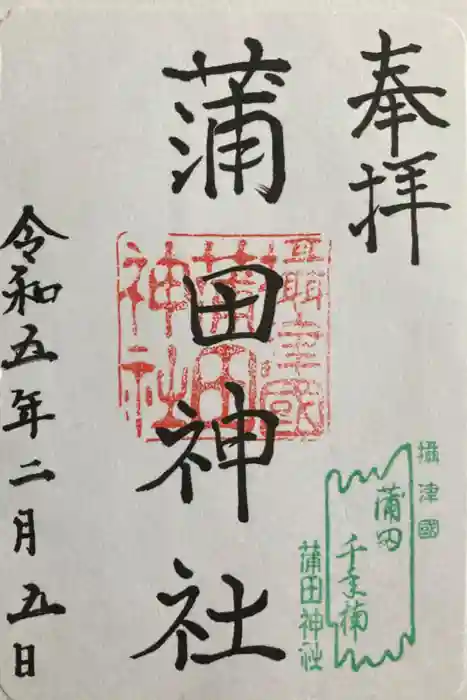 奉拝
蒲田神社
令和五年二月五日
攝津國
蒲田
千年楠
蒲田神社
蒲田
神社